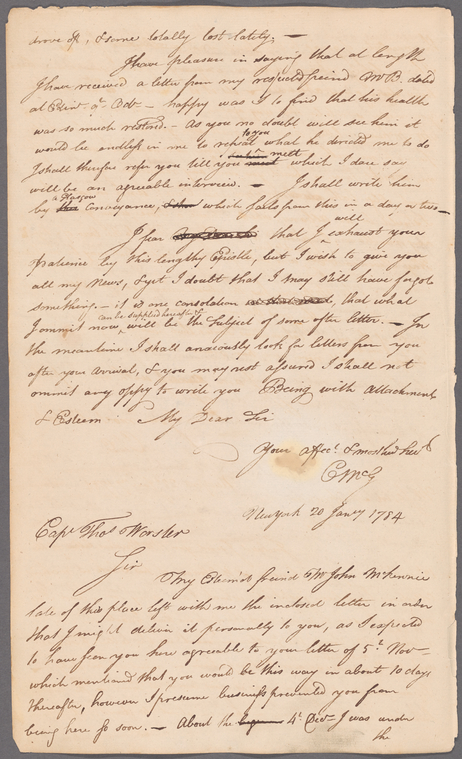 drove off, & some totally lost lately. —
I have pleasure in saying that at length
I have received a letter from my respected friend Mr B. dated
at 8 Octr — happy was I to find that his health
was so much restored. — As you no doubt will see him it
would be endless in me to rehearse to you what he directed me to do
I shall therefore refer you till you meet which I dare say
will be an agreeable interview. — I shall write him
by a Glasgow conveyance, which falls from this in a day or two —
I fear that I will exhaust your
Patience by this lengthy Epistle, but I wish to give you
all my News, & yet I doubt that I may still have forgot
something. — it is one consolation, that what
I ommit now, can be supplied hereafter & will be the Subject of some after letter. — In
the meantime I shall anxiously look for letters from you
after your arrival, & you may rest assured I shall not
ommit any oppy to write you Being with attachment
& Esteem My Dear Sir
Your affect. & most hul servt
CMcG
New York 20 Jany 1784
Capt Thos Worster
Sir
My Esteem'd friend Mr John McKennie
late of this place left with me the inclosed letter in order
that I might deliver it personally to you, as I expected
to have seen you here agreeable to your letter of 5t Nov —
which mentioned that you would be this way in about 10 days
thereafter, however I presume business prevented you from
being here so soon. — About the 4t Decr I was under
the